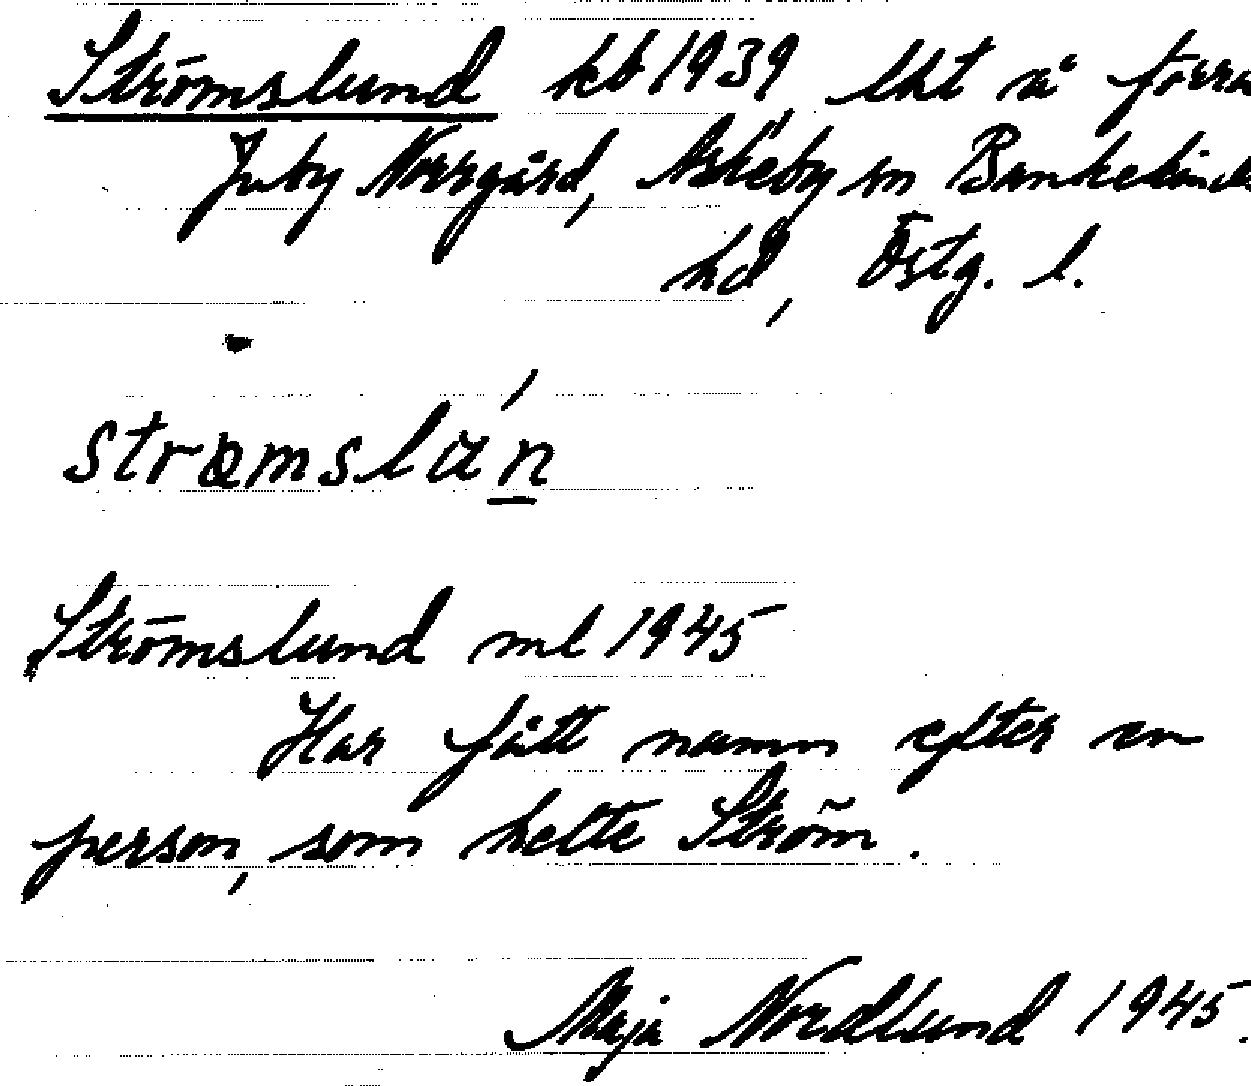 Strömslund kb 1939, lht å förra
Juby Norrgård, Askeby sn Bankekinds
hd, Östg. l.
strömslán
Strömslund ml 1945
Har fått namn efter en
person, som hette Ström.
Maja Nordlund 1945.